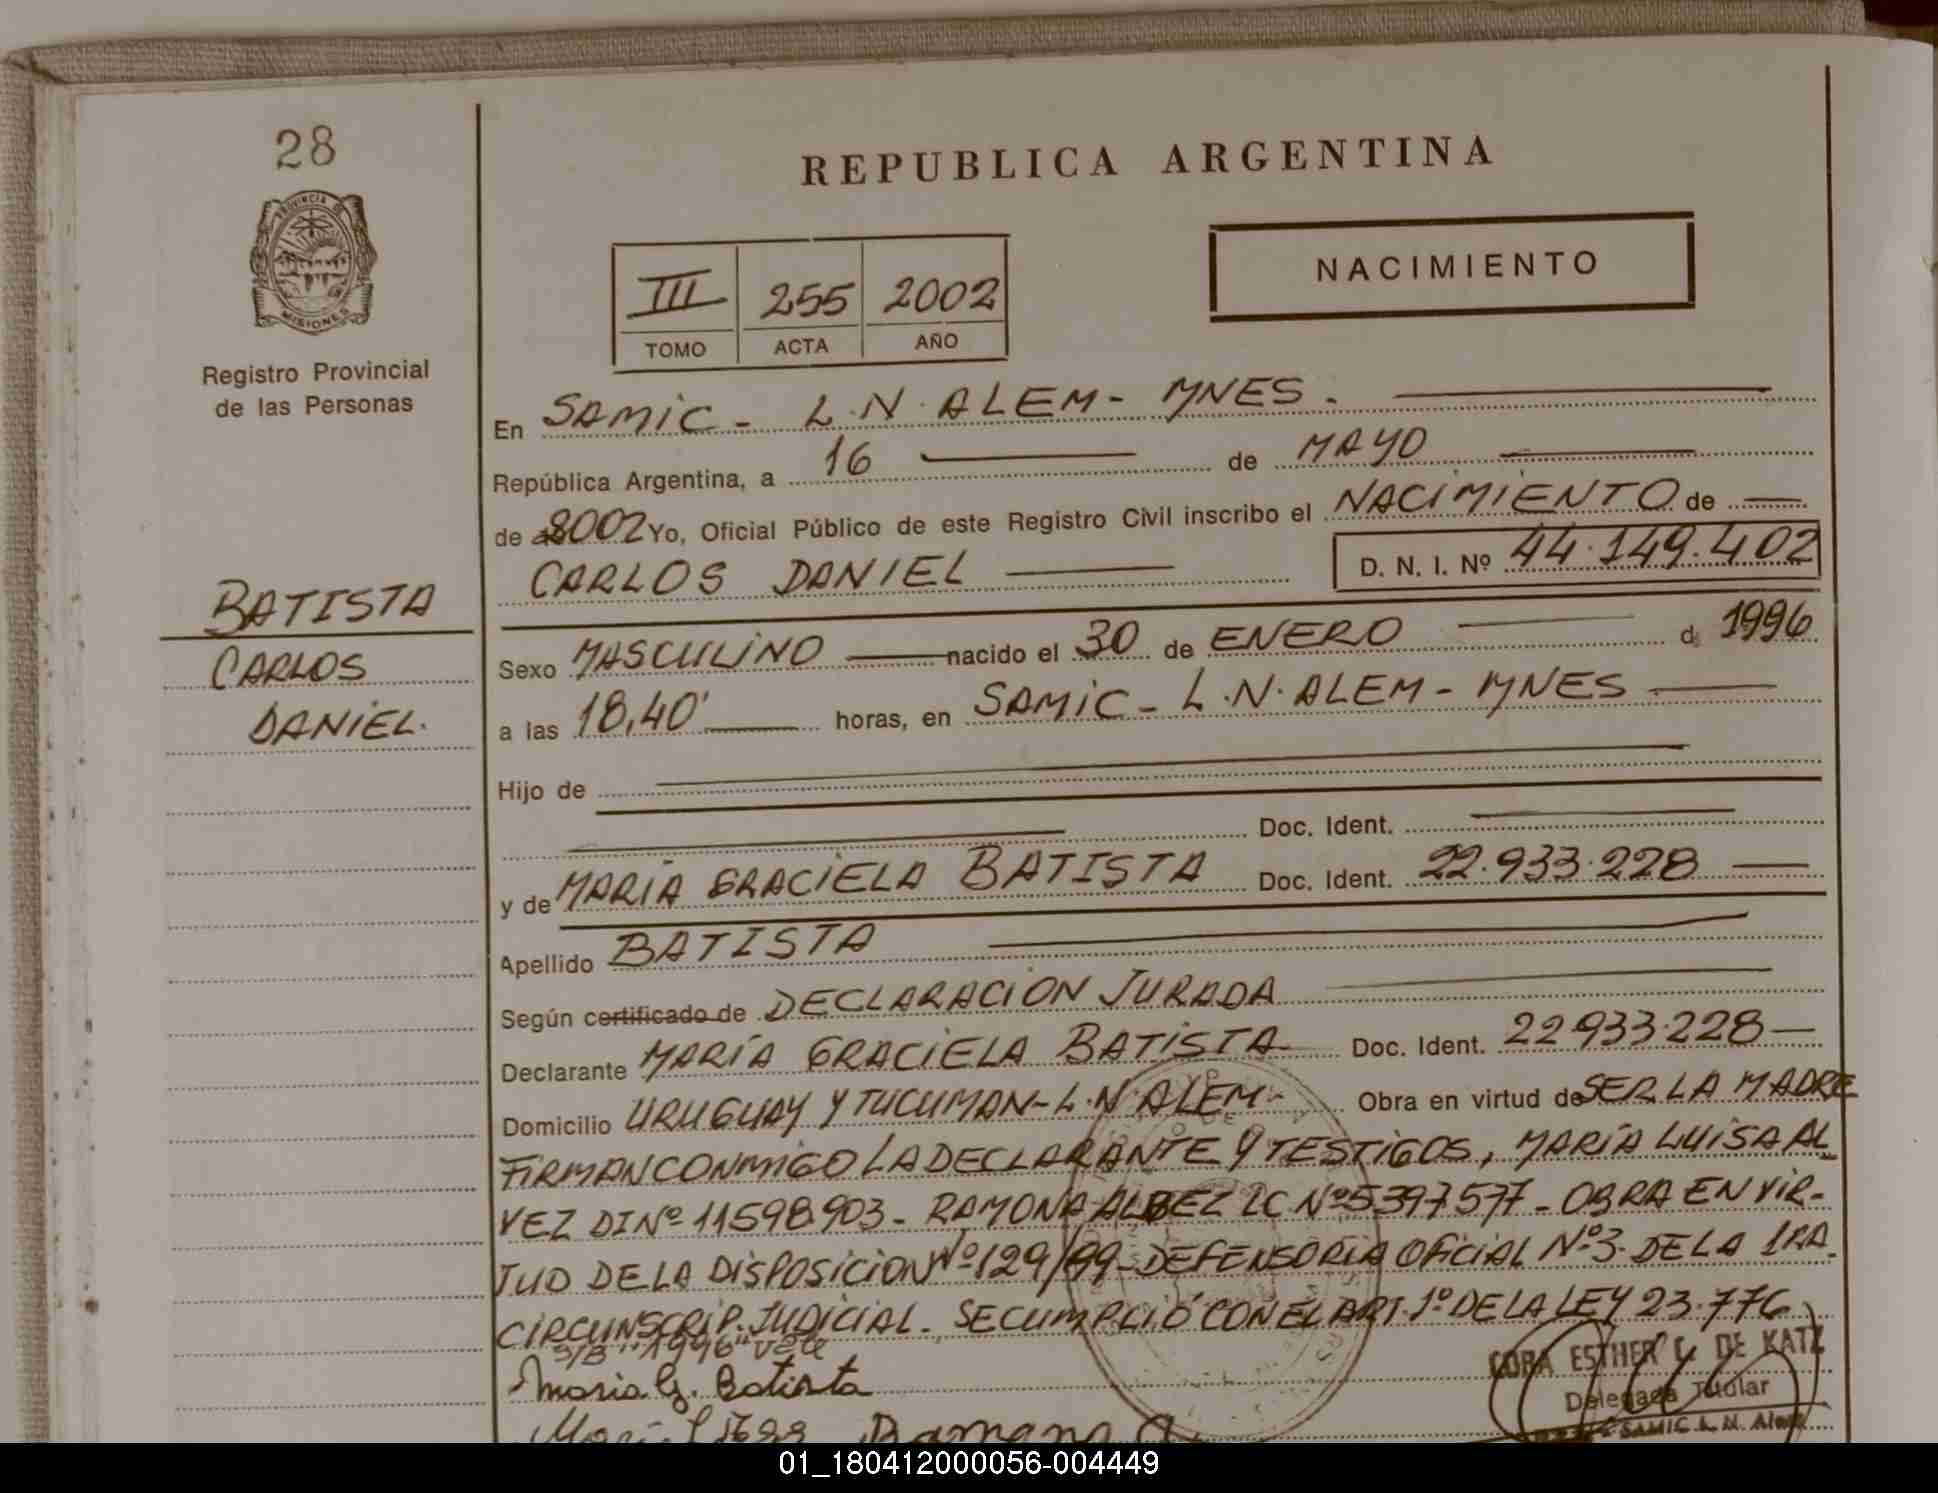 28
PROVINCIA DE
MISIONES
Registro Provincial
de las Personas
BATISTA
CARLOS
DANIEL.
REPUBLICA ARGENTINA
NACIMIENTO
III 255 2002
TOMO ACTA AÑO
En SAMIC - L.N. ALEM - MNES.
República Argentina, a 16 de MAYO
de 2002 Yo, Oficial Público de este Registro Civil inscribo el NACIMIENTO de
CARLOS DANIEL D. N. I. Nº 44.149.402
Sexo MASCULINO nacido el 30 de ENERO d 1996
a las 18,40' horas, en SAMIC - L.N. ALEM - MNES
Hijo de
Doc. Ident.
y de MARIA GRACIELA BATISTA Doc. Ident. 22.933.228
Apellido BATISTA
Según certificado de DECLARACION JURADA
Declarante MARÍA GRACIELA BATISTA Doc. Ident. 22933.228
Domicilio URUGUAY Y TUCUMAN - L.N. ALEM - Obra en virtud de SER LA MADRE
FIRMAN CONMIGO LA DECLARANTE Y TESTIGOS, MARÍA LUISA AL
VEZ DI Nº 11598903 - RAMONA LC Nº 5397577 - OBRA EN VIR-
TUD DE LA DISPOSICION Nº 129/99 - DEFENSORIA OFICIAL Nº 3 DE LA 1RA.
CIRCUNSCRIP. JUDICIAL. SE CUMPLIÓ CON EL ART. 1º DE LA LEY 23.776
S/B "1996" vale
Maria G. Batista
CORA ESTHER C. DE KATZ
Delegada Titular
SAMIC L. N. Alem
Ramona A.
01_180412000056-004449